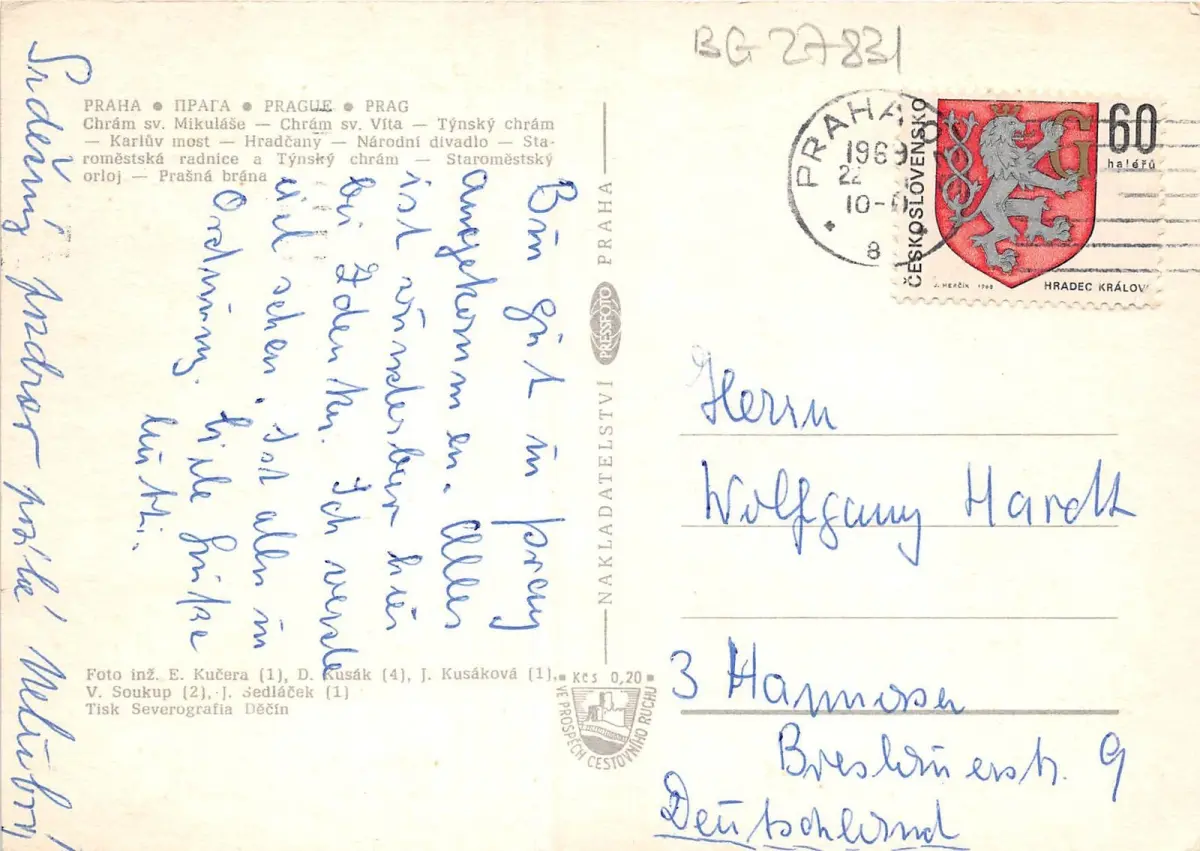 BG 27831
PRAHA ● ПРАГА ● PRAGUE ● PRAG
Chrám sv. Mikuláše — Chrám sv. Víta — Týnský chrám
— Karlův most — Hradčany — Národní divadlo — Sta-
roměstská radnice a Týnský chrám — Staroměstský
orloj — Prašná brána
Bin gut in Prag
angekommen. Alles
ist wunderbar hier
bei Zdenky. Ich werde
viel sehen. Ist alles in
Ordnung. Viele Grüße
Mutti.
Srdečný pozdrav
Foto inž. E. Kučera (1), D. Kusák (4), J. Kusáková (1),
V. Soukup (2), J. Sedláček (1)
Tisk Severografia Děčín
NAKLADATELSTVÍ PRESSFOTO PRAHA
Kčs 0,20
VE PROSPĚCH CESTOVNÍHO RUCHU
PRAHA
1969
22
10-
8
ČESKOSLOVENSKO
60
haléřů
G
J. HERČÍK 1968
HRADEC KRÁLOV
Herrn
Wolfgang Hardt
3 Hannover
Breslauerstr. 9
Deutschland